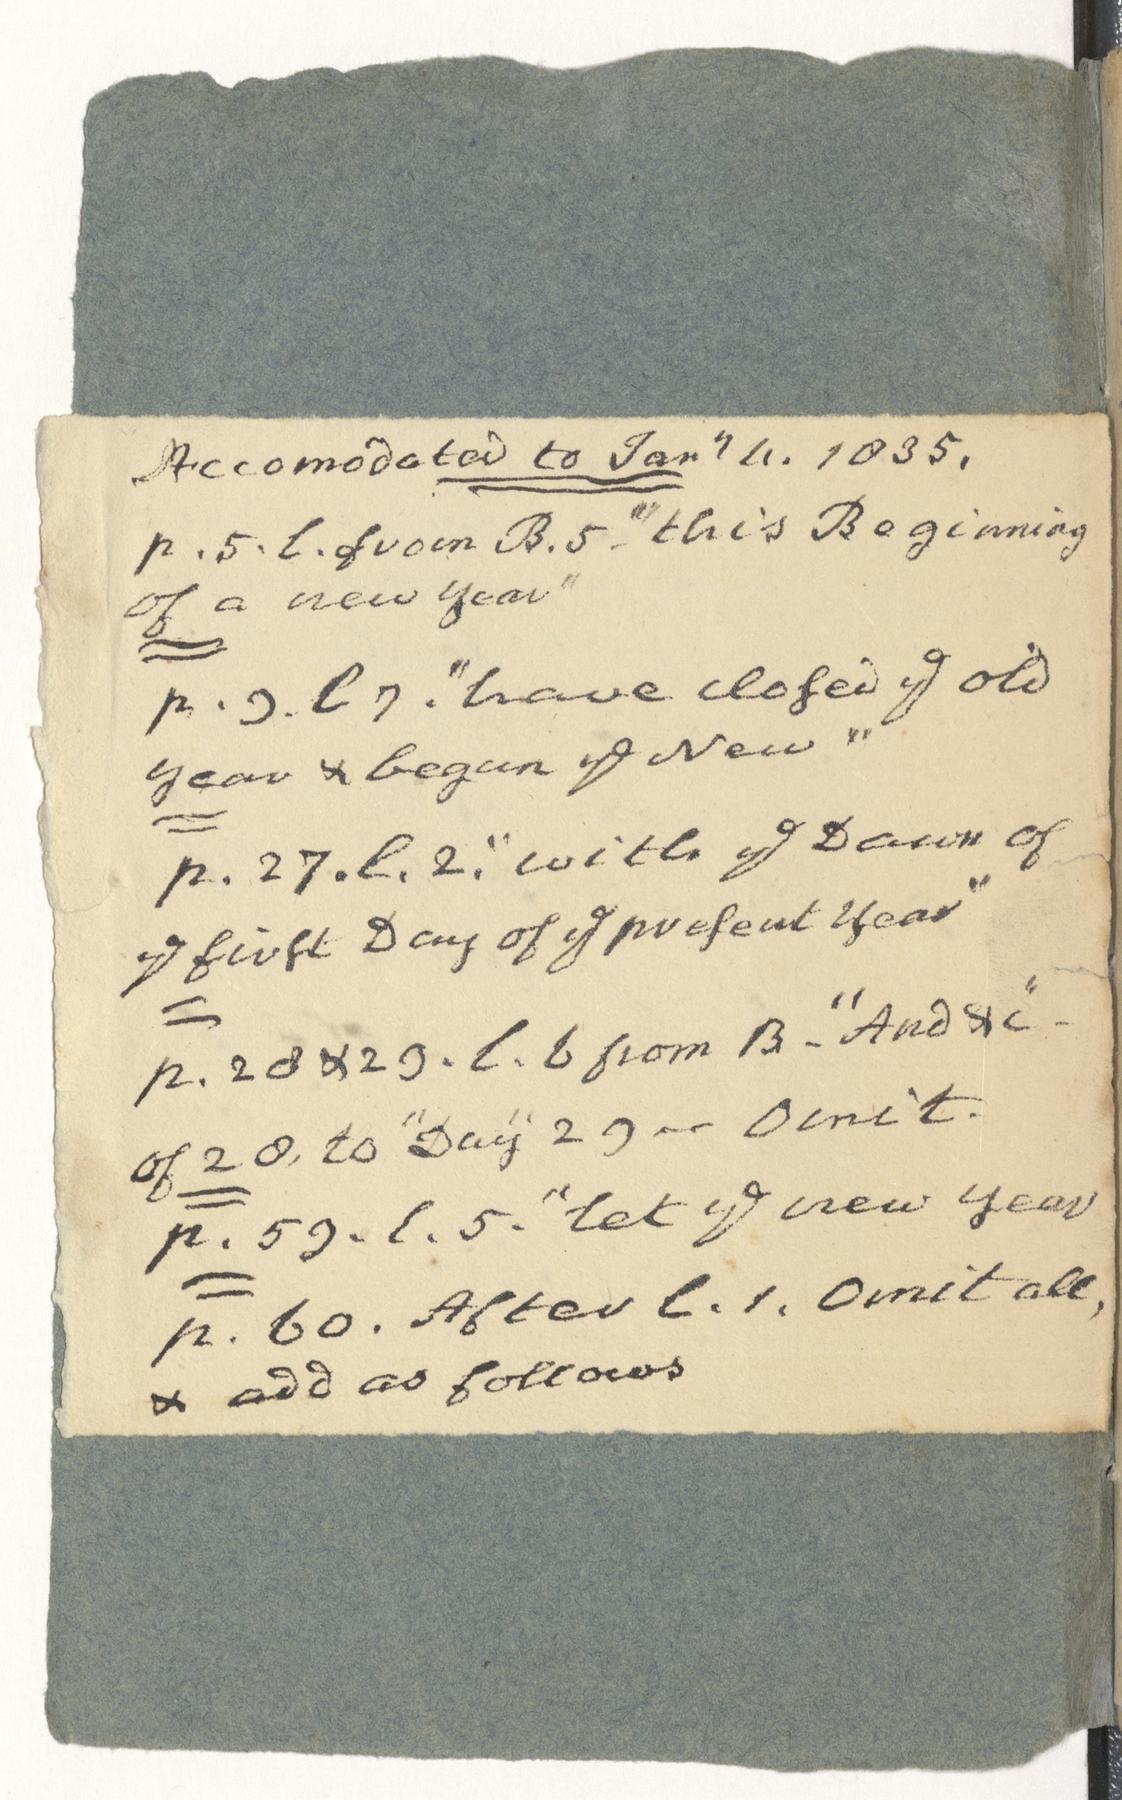 Accomodated to Jany 4. 1835.
p. 5. l. from B. 5 - "this Beginning
of a new Year"
p. 9. l 7. "have closed ye old
year & begun ye New"
p. 27. l. 2. "with ye Dawn of
ye first Day of ye present Year"
p. 28 & 29. l. 6 from B. - "And &c" -
of 28, to "Day" 29 - Omit.
p. 59. l. 5. "let ye new Year
p. 60. After l. 1. Omit all,
& add as follows